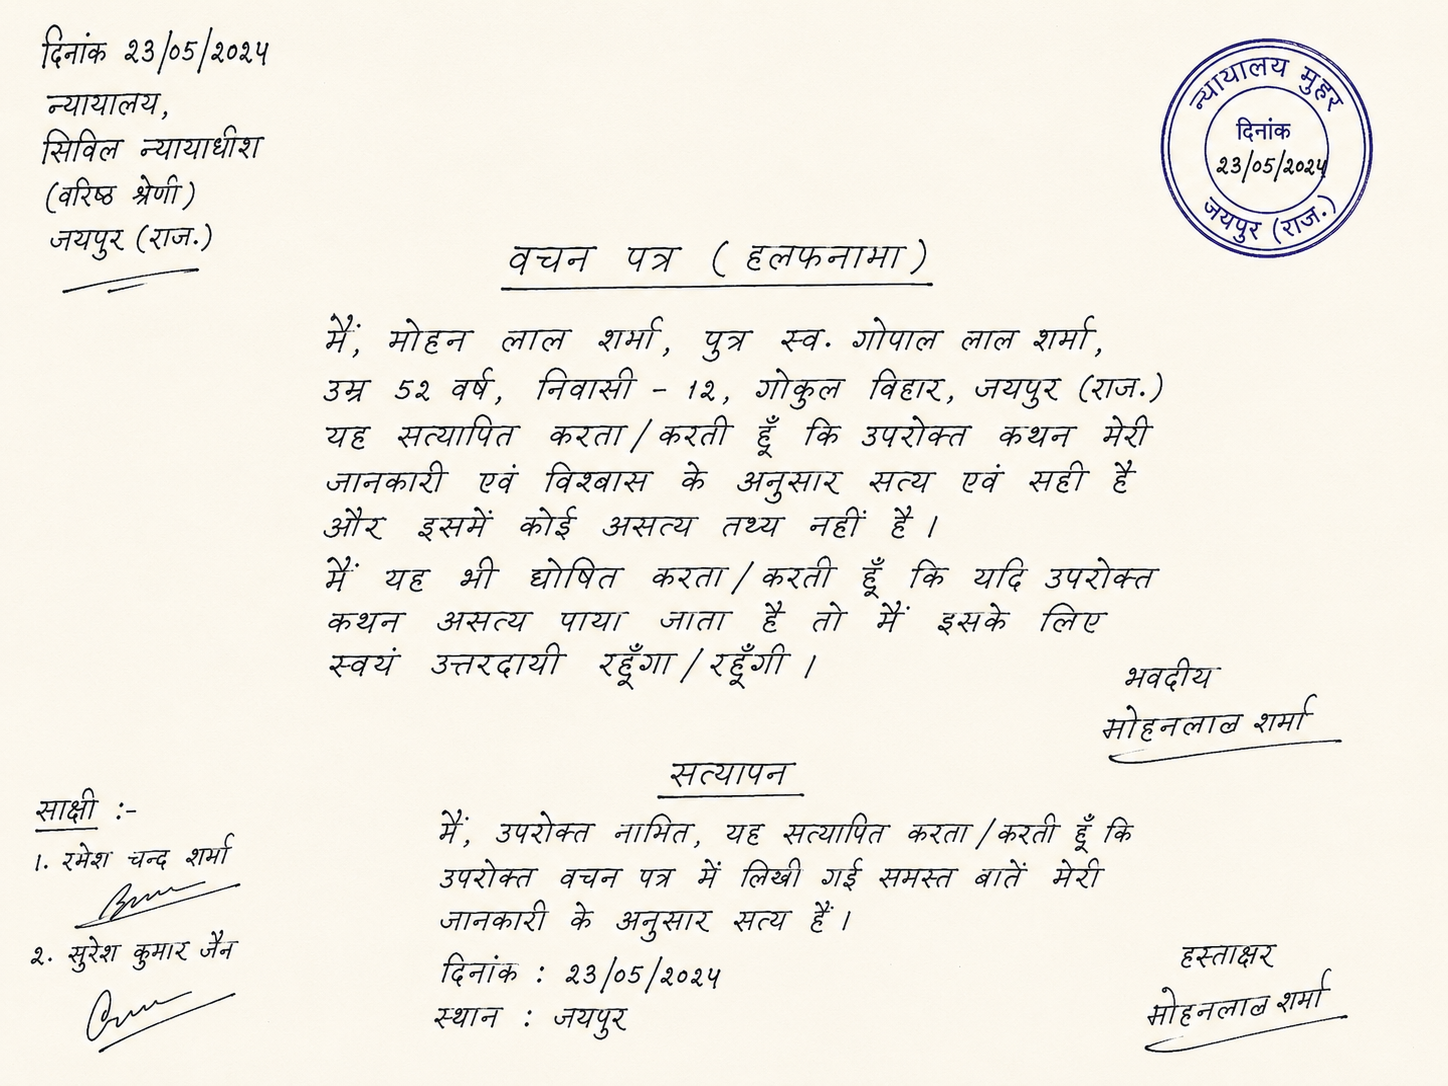 दिनांक 23/05/2024
न्यायालय,
सिविल न्यायाधीश
(वरिष्ठ श्रेणी)
जयपुर (राज.)
न्यायालय मुहर
दिनांक
23/05/2024
जयपुर (राज.)
वचन पत्र (हलफनामा)
मैं, मोहन लाल शर्मा, पुत्र स्व. गोपाल लाल शर्मा,
उम्र 52 वर्ष, निवासी - 12, गोकुल विहार, जयपुर (राज.)
यह सत्यापित करता/करती हूँ कि उपरोक्त कथन मेरी
जानकारी एवं विश्वास के अनुसार सत्य एवं सही है
और इसमें कोई असत्य तथ्य नहीं है।
मैं यह भी घोषित करता/करती हूँ कि यदि उपरोक्त
कथन असत्य पाया जाता है तो मैं इसके लिए
स्वयं उत्तरदायी रहूँगा/रहूँगी।
भवदीय
मोहनलाल शर्मा
सत्यापन
मैं, उपरोक्त नामित, यह सत्यापित करता/करती हूँ कि
उपरोक्त वचन पत्र में लिखी गई समस्त बातें मेरी
जानकारी के अनुसार सत्य हैं।
दिनांक : 23/05/2024
स्थान : जयपुर
साक्षी :-
1. रमेश चन्द्र शर्मा
2. सुरेश कुमार जैन
हस्ताक्षर
मोहनलाल शर्मा